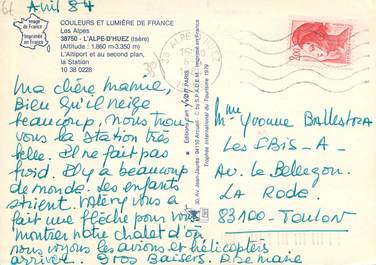 Avril 87
COULEURS ET LUMIÈRE DE FRANCE
Les Alpes
38750 - L'ALPE-D'HUEZ (Isère)
(Altitude : 1.860 m-3.350 m)
L'Altiport et au second plan,
la Station
10 38 0228
Image
de France
Imprimée
en France
Ma chère mamie,
Bien qu'il neige
beaucoup, nous trou
vons la station très
belle. Il ne fait pas
froid. Il y a beaucoup
de monde. les enfants
skient. Valéry vous a
fait une flèche pour vous
montrer notre chalet d'où
nous voyons les avions et hélicoptères
arriver. Gros Baisers. Rosemarie
Editions d'art yvon PARIS
30, Av. Jean-Jaurès, 94110 Arcueil - © S.P.A.D.E.M. - Imprimé en France
Trophée International du Tourisme 1979
38 ALPE D'HUEZ
2,00
Mme Yvonne Ballestra
Les
Av. le
LA RODE.
83100 - Toulon